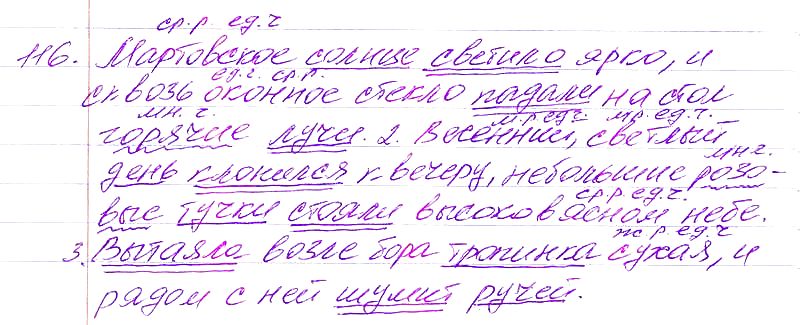 ср.р. ед.ч
116. Мартовское солнце светило ярко, и
ед.ч. ср.р.
сквозь оконное стекло падали на стол
мн. ч. м.р ед.ч. м.р. ед.ч.
горячие лучи. 2. Весенний, светлый
мн ч.
день клонился к вечеру, небольшие розо-
ср.р. ед.ч.
вые тучки стояли высоко в ясном небе.
ж.р ед.ч
3. Вытаяла возле бора тропинка сухая, и
рядом с ней шумит ручей.